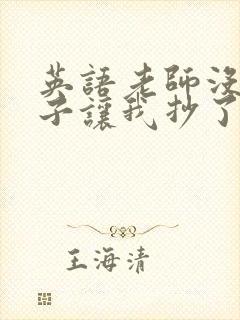 英語老師沒
子讓我抄了
王海清